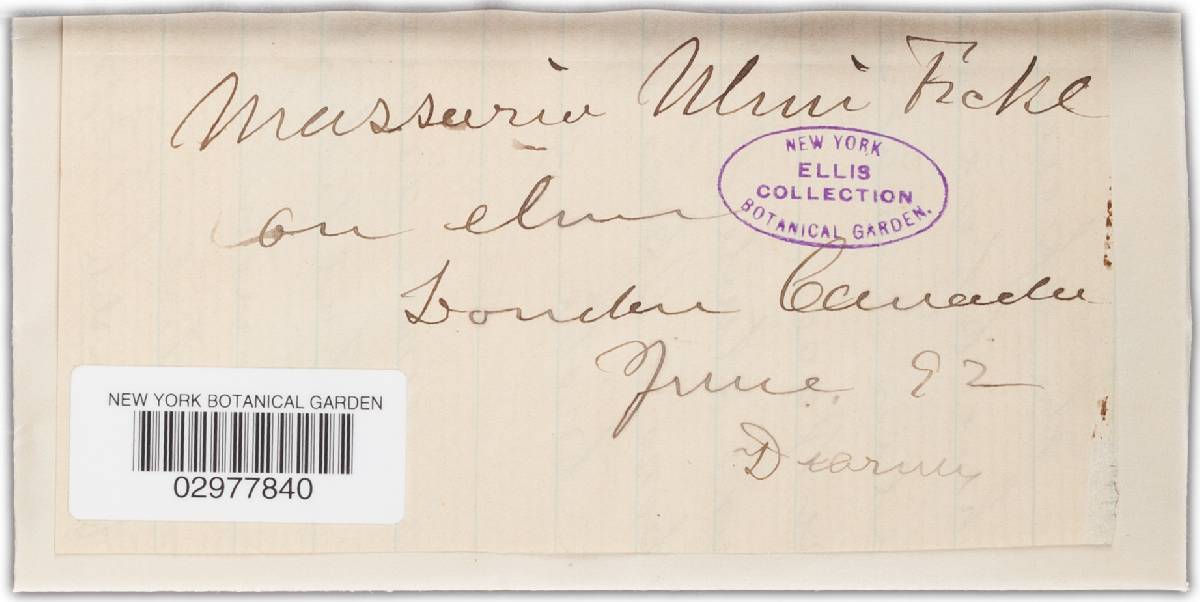 Massaria Ulmi Fckl
NEW YORK
ELLIS
COLLECTION
BOTANICAL GARDEN.
on elm
London Canada
June 92
Dearness
NEW YORK BOTANICAL GARDEN
02977840